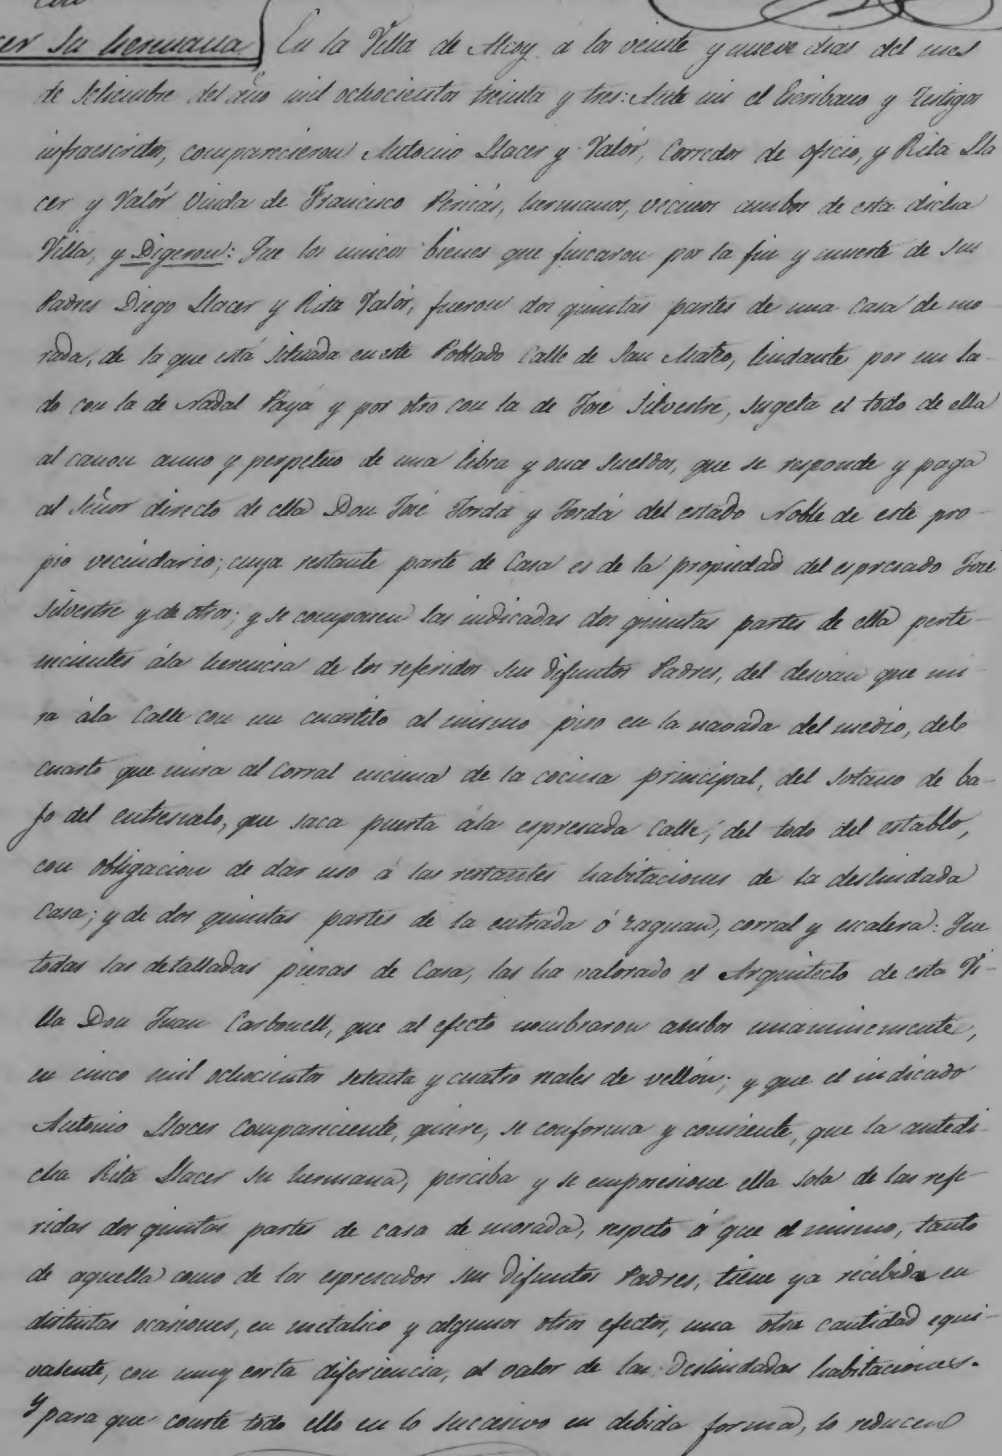 con
cer su hermana
En la Villa de Alcoy a los veinte y nueve dias del mes
de Setiembre del año mil ochocientos treinta y tres: Ante mi el Escribano y Testigos
infraescritos, comparecieron Antonio Llacer y Valór, Corredor de oficio, y Rita Lla
cer y Valór Viuda de Francisco Pericás, hermanos, vecinos ambos de esta dicha
Villa, y Digeron: Que los unicos bienes que fincaron por la fin y muerte de sus
Padres Diego Llacer y Rita Valór, fueron dos quintas partes de una Casa de mo-
rada, de la que está situada en este Poblado Calle de San Mateo, lindante por un la-
do con la de Nadal Payá y por otro con la de José Silvestre, sugeta el todo de ella
al canon anuo y perpetuo de una libra y once sueldos, que se responde y paga
al Señor directo de ella Don José Jordá y Jordá del estado Noble de este pro-
pio vecindario; cuya restante parte de Casa es de la propiedad del espresado José
Silvestre y de otros; y se componen las indicadas dos quintas partes de ella perte-
necientes ála herencia de los referidos sus difuntos Padres, del desvan que mi
ra ála Calle con un cuartito al mismo piso en la navada del medio, del
cuarto que mira al corral encima de la cocina principal, del sotano de ba-
jo del entresuelo, que saca puerta ála espresada Calle; del todo del establo,
con obligacion de dar uso á las restantes habitaciones de la deslindada
Casa; y de dos quintas partes de la entrada ó zaguan, corral y escalera: Que
todas las detalladas piezas de Casa, las ha valorado el Arquitecto de esta Vi-
lla Don Juan Carbonell, que al efecto nombraron ambos unanimemente,
en cinco mil ochocientos setenta y cuatro reales de vellon; y que el indicado
Antonio Llacer Compareciente, quiere, se conforma y consiente, que la antedi-
cha Rita Llacer su hermana, perciba y se emposesione ella sola de las refe-
ridas dos quintas partes de casa de morada, respeto á que el mismo, tanto
de aquella como de los espresados sus difuntos Padres, tiene ya recibida en
distintas ocasiones, en metalico y algunos otros efectos, una otra cantidad equi-
valente, con muy corta diferencia, al valor de las deslindadas habitaciones.
Y para que conste todo ello en lo sucesivo en debida forma, lo reducen